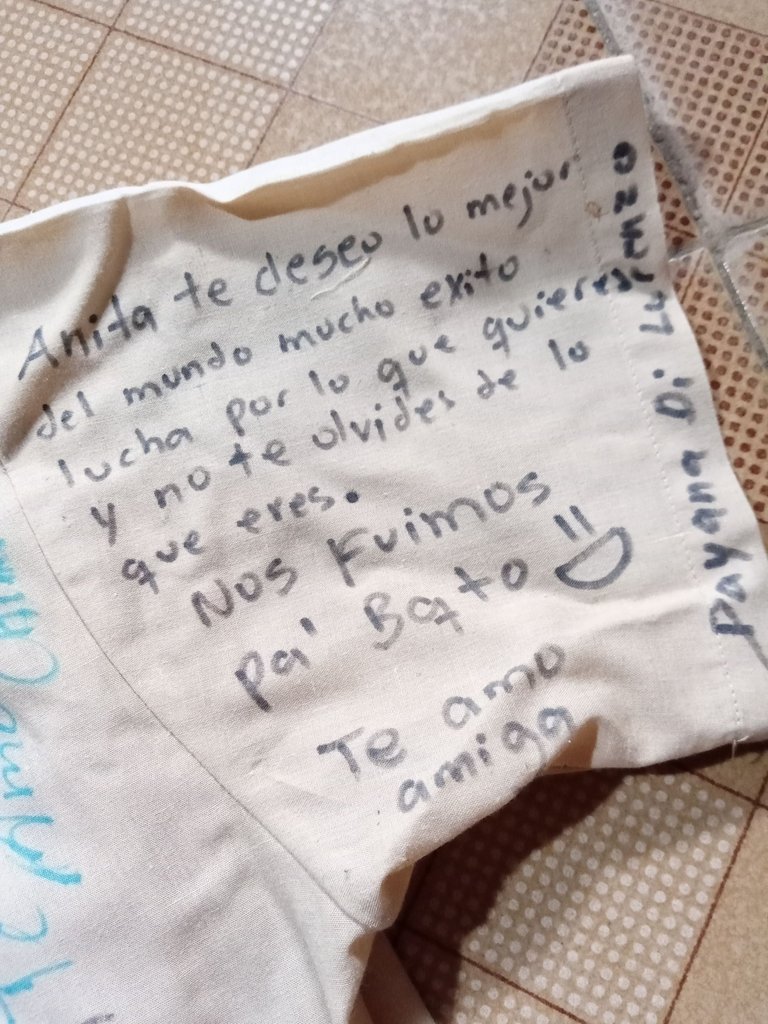 Anita te deseo lo mejor
del mundo mucho exito
lucha por lo que quieres
y no te olvides de lo
que eres.
Nos Fuimos
pa' Bato
Te amo
amiga
Dayana Di Lorenzo